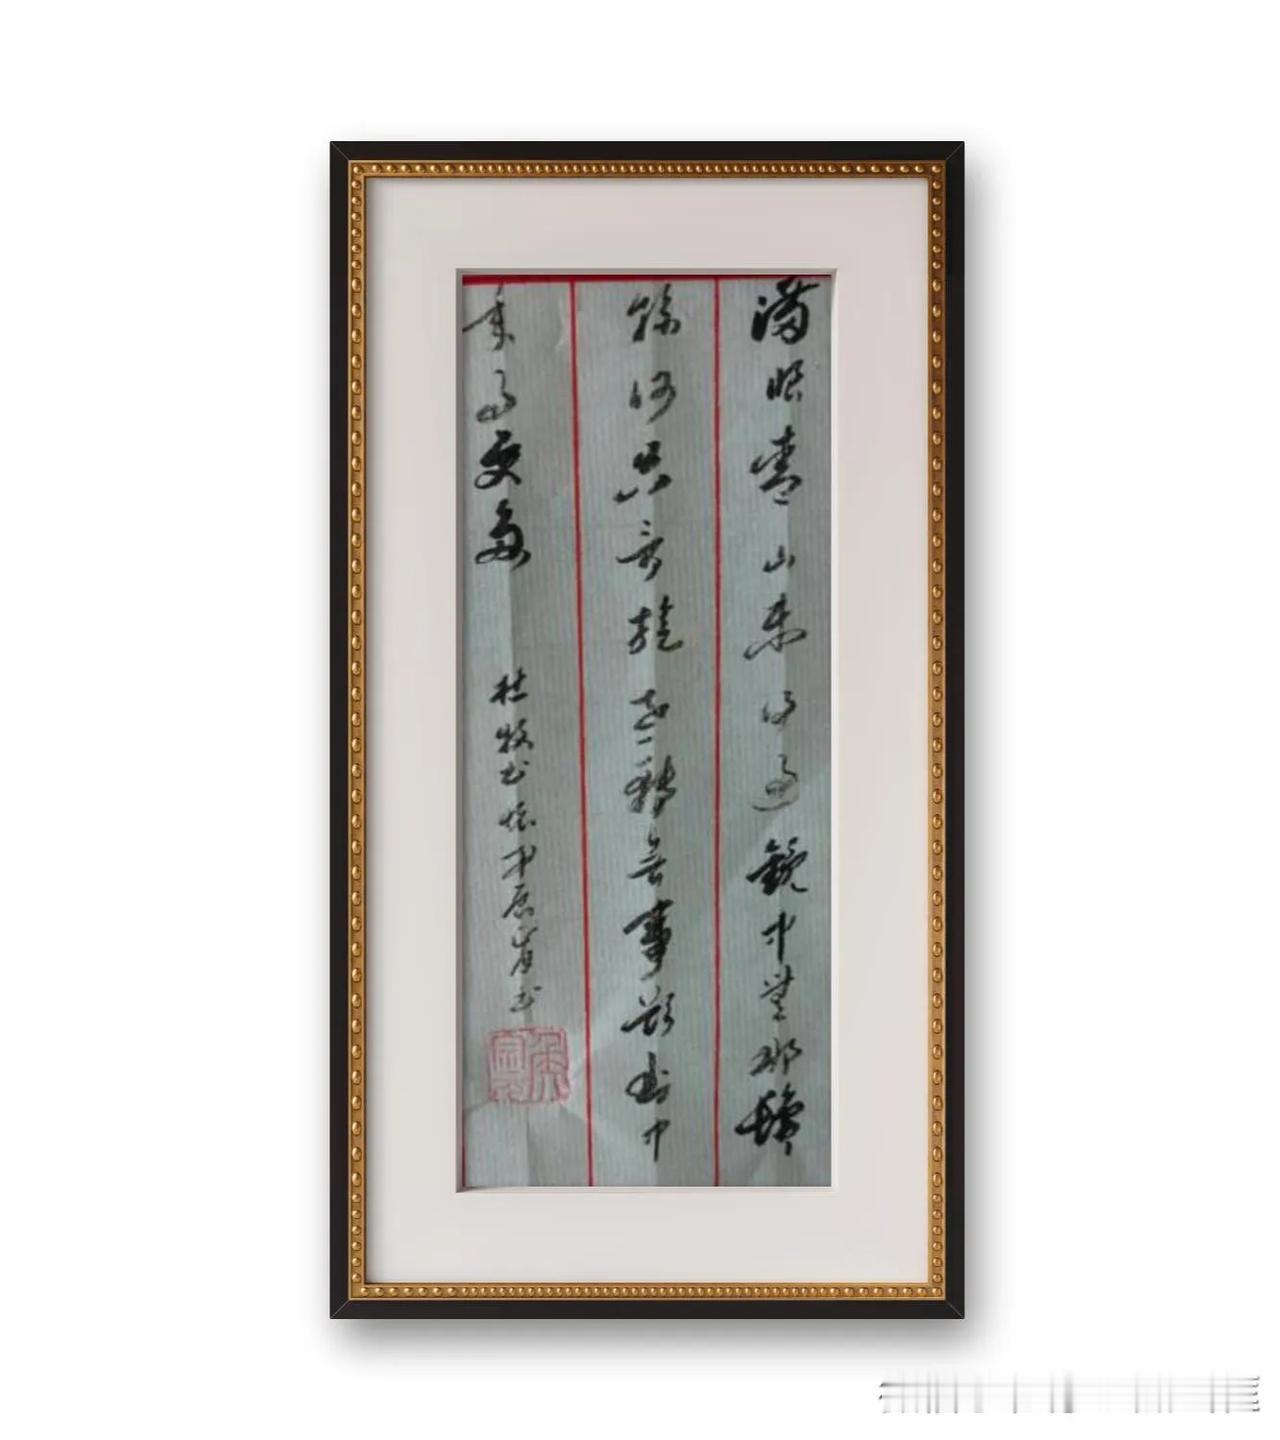 滿眼青山未得過鏡中無那鬢
絲何只言旋老轉無事欲到中
年事更多 杜牧书懷甲辰书